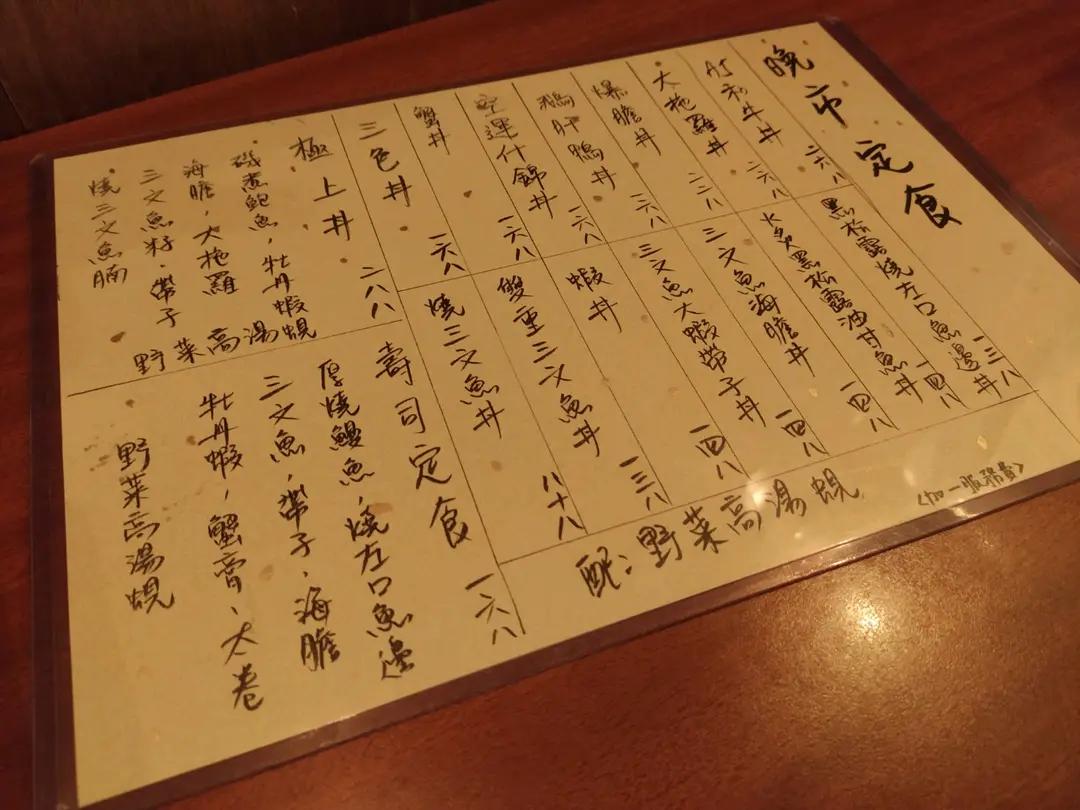 晚市定食
A5和牛丼 二六八
大拖羅丼 二二八
爆膽丼 二六八
鵝肝鴨丼 一六八
空運什錦丼 一六八
蟹丼
三色丼 一六八
極上丼 二八八
磯煮鮑魚，牡丹蝦
海膽，大拖羅
三文魚籽，帶子
燒三文魚腩
野菜高湯蜆
黑松露燒左口魚邊丼 一三八
火炙黑松露油甘魚丼 一四八
三文魚海膽丼 一四八
三文魚大蝦帶子丼 一四八
蝦丼 一三八
雙重三文魚丼 八十八
燒三文魚丼
壽司定食 一六八
厚燒鰻魚，燒左口魚邊
三文魚，帶子，海膽
牡丹蝦，蟹膏、太卷
野菜高湯蜆
配：野菜高湯蜆
<加一服務費>